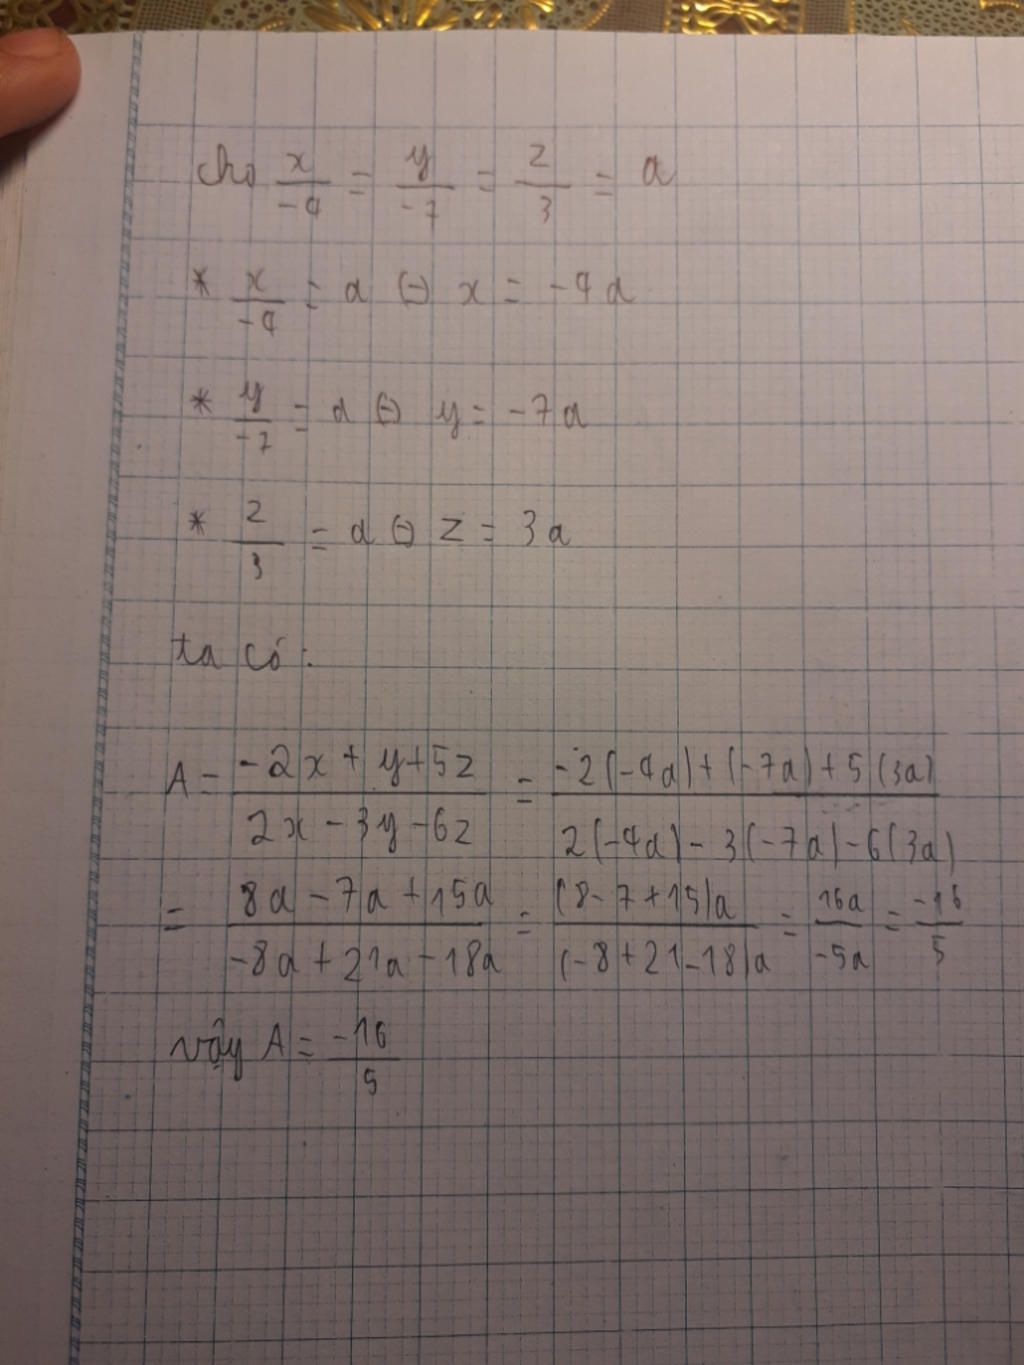 cho x/-4 = y/-7 = z/3 = a
* x/-4 = a ⇔ x = -4a
* y/-7 = a ⇔ y = -7a
* z/3 = a ⇔ z = 3a
ta có:
A = (-2x + y + 5z)/(2x - 3y - 6z) = (-2(-4a) + (-7a) + 5(3a))/(2(-4a) - 3(-7a) - 6(3a))
= (8a - 7a + 15a)/(-8a + 21a - 18a) = ((8 - 7 + 15)a)/((-8 + 21 - 18)a) = 16a/-5a = -16/5
vậy A = -16/5